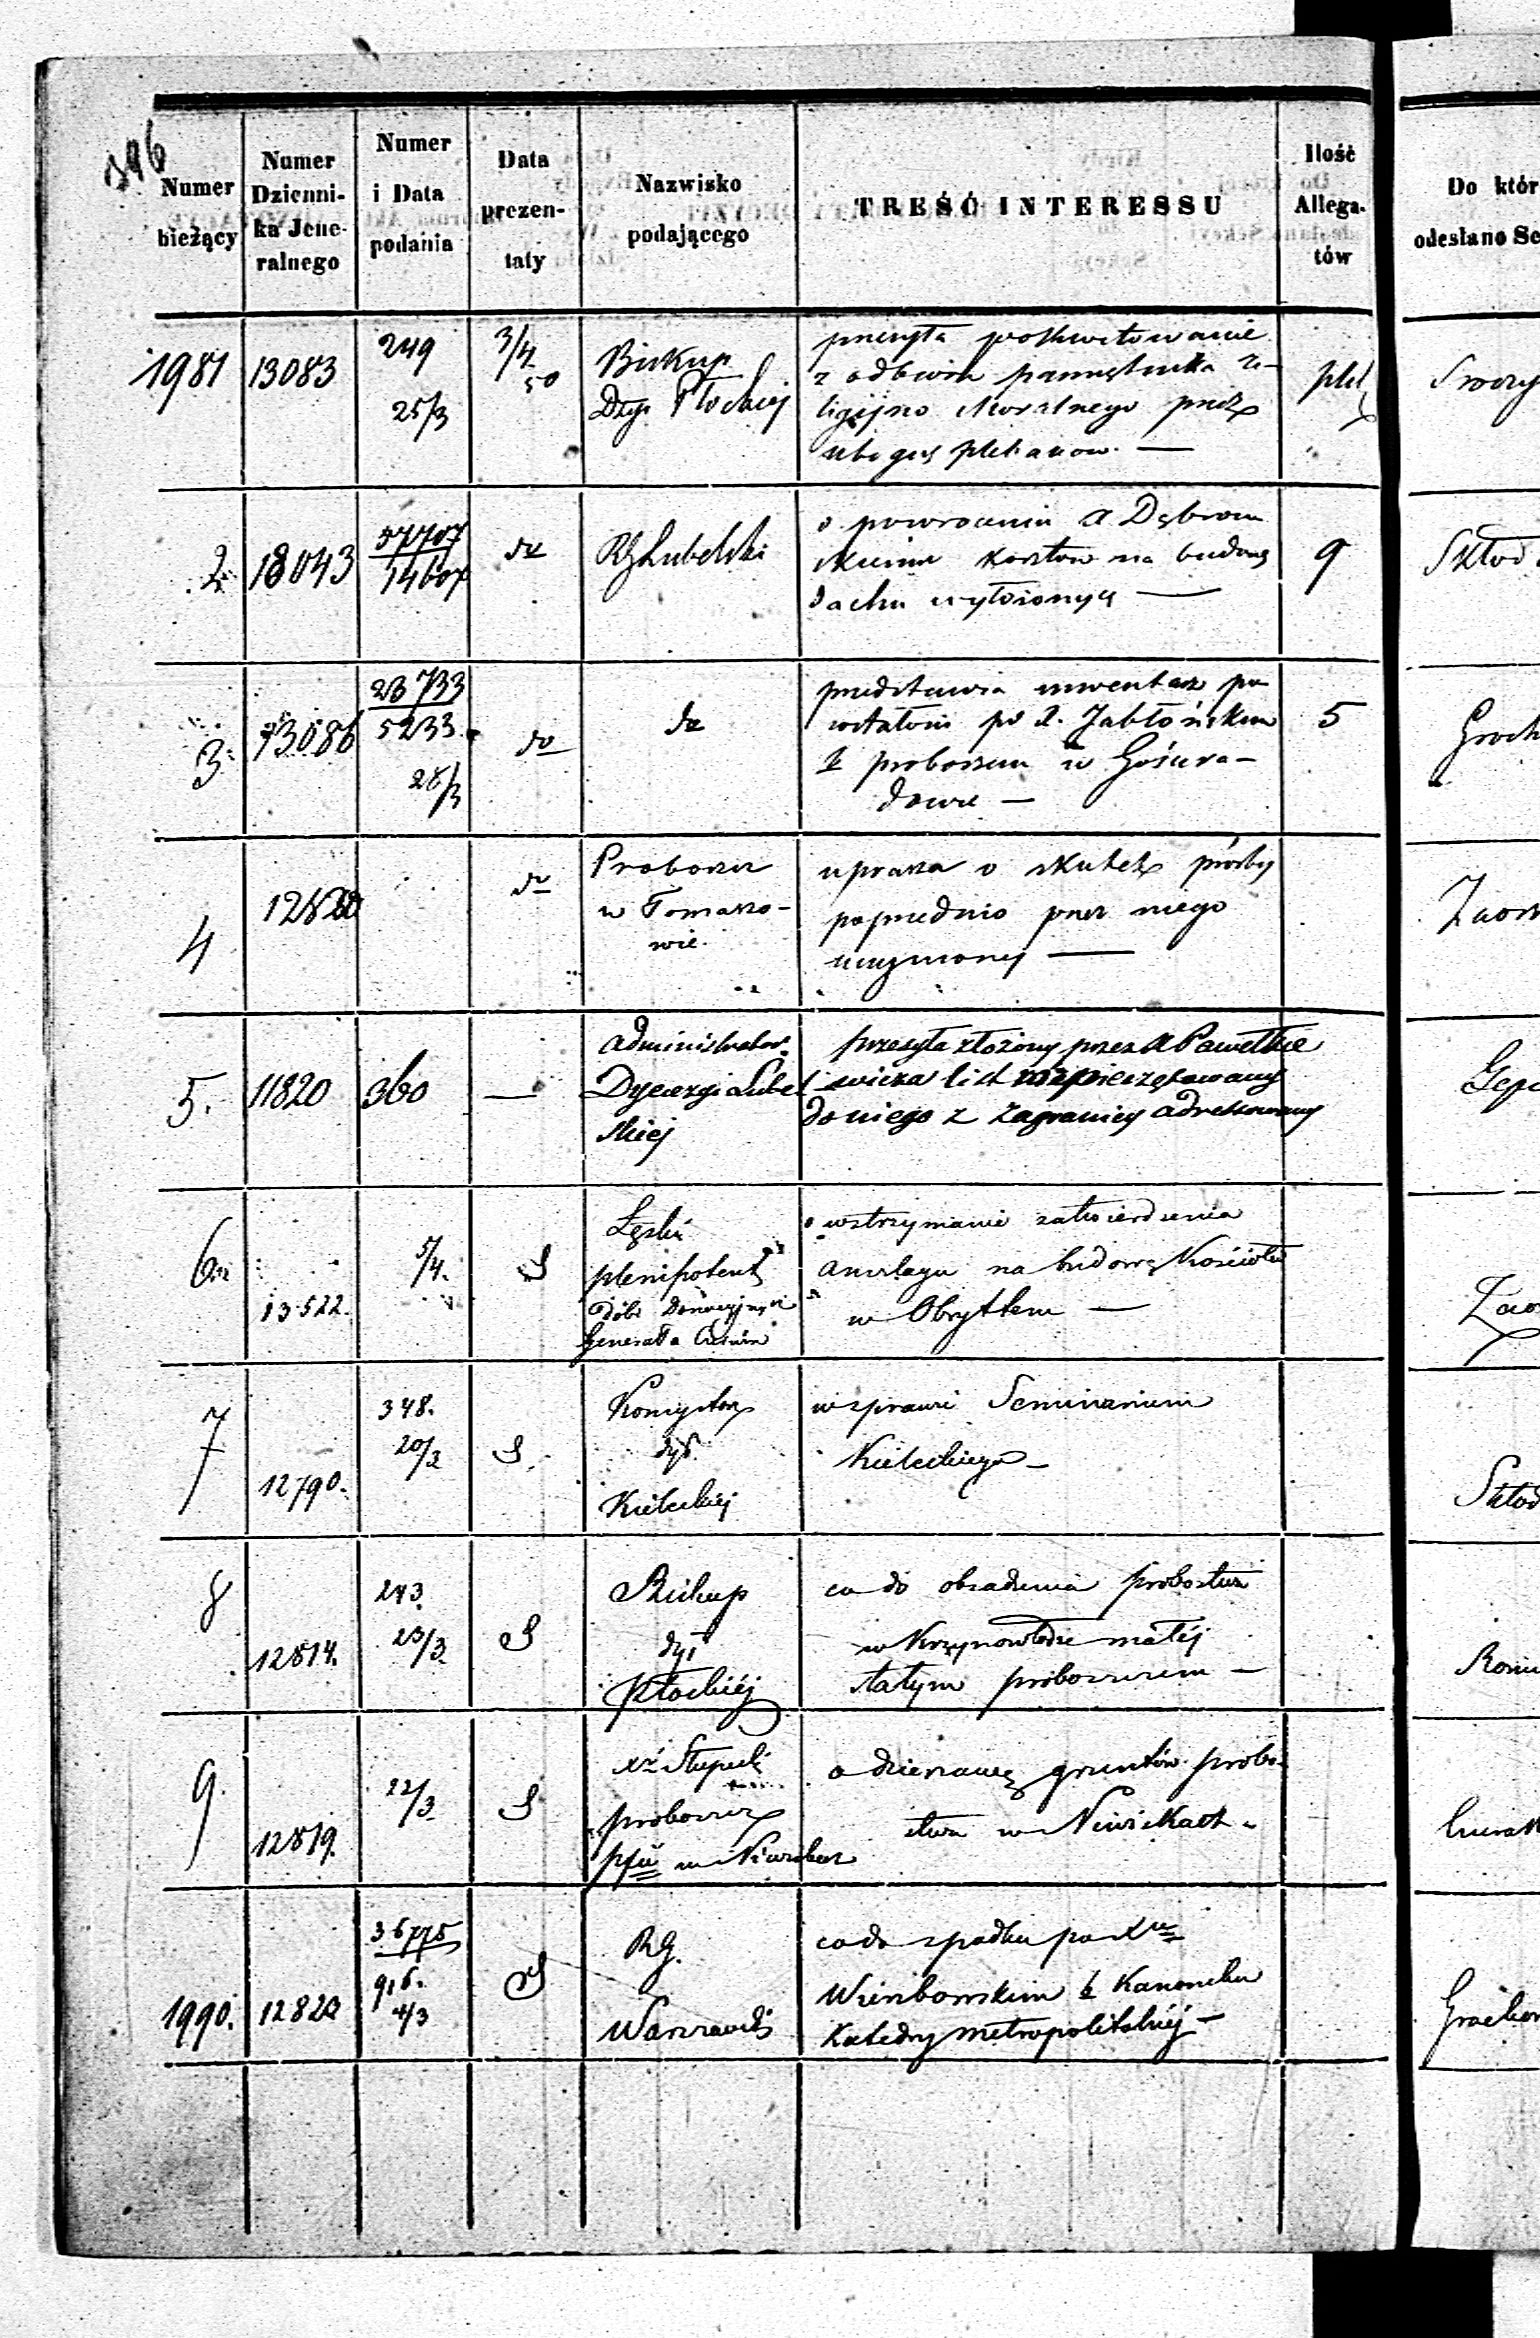 396
Numer bieżący
Numer Dzienni- ka Jene- ralnego
Numer i Data podania
Data prezen- taty
Nazwisko podającego
TREŚĆ INTERESSU
Ilość Allega- tów
Do któr
odesłano Se
1981 13083 249 25/3 3/4 50
Biskup
Dyj. Płockiej
przesyła poskwitowanie
z odbioru pamiętnika re-
ligijno Moralnego przez
ubogich plebanów. —
2. 13043 14607 do RG Lubelski
o powrócenie X Dębrow
skiemu kosztów na budowę
dachu wyłożonych —
9
3. 13086 23733 5233. 28/3 do do
przedstawia inwentarz po
zostałości po X. Jabłońskim
b proboszczu w Gościera-
dowie —
5
Groch
4 do
Proboszcz
w Tomaszo-
wie.
uprasza o skutek prośby
poprzednio przez niego
uczynionej —
5. 11820 360 —
Administrator
Dyecezyi Lubel
skiej
przesyła złożony przez X Pawełkie
wicza list
do niego z zagranicy adresowany
6. 13522. 5/4. S
Łęski
plenipotent
dóbr Donacyjnych
Generała
o wstrzymanie zatwierdzenia
anszlagu na budowę Kościoła
w Obrytem —
7 12790. 348. 20/3 S.
Konsystorz
dyi.
Kieleckiej
w sprawie Seminarium
Kieleckiego —
8 12814. 243. 23/3 S
Biskup
dyi
Płockiéj
co do obsadzenia probostwa
w Krzynowłodze małéj
stałym proboszczem —
9. 12819. 22/3 S
xż Słupecki
proboszcz
pfii w
o dzierżawę gruntów probo-
stwa w
1990. 12820 36775 916. 4/3 S
RG.
Warszawski
co do spadku po Xu
Wierzbowskim b Kanoniku
Katedry metropolitalnéj —